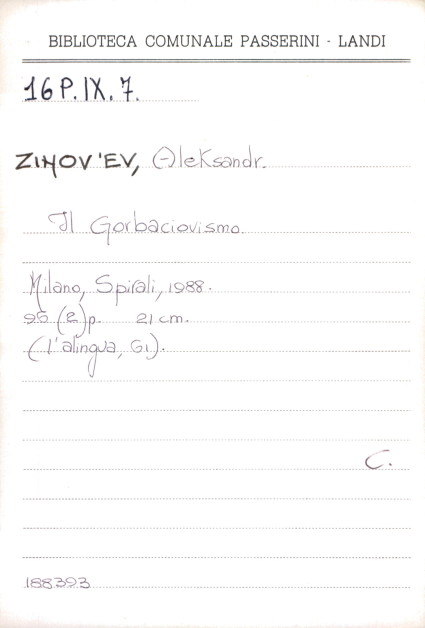 BIBLIOTECA COMUNALE PASSERINI - LANDI
16 P. IX. 7.
ZINOV'EV, Aleksandr.
Il Gorbaciovismo.
Milano, Spirali, 1988.
95 (2) p. 21 cm.
(l'alingua, 61).
C.
188393